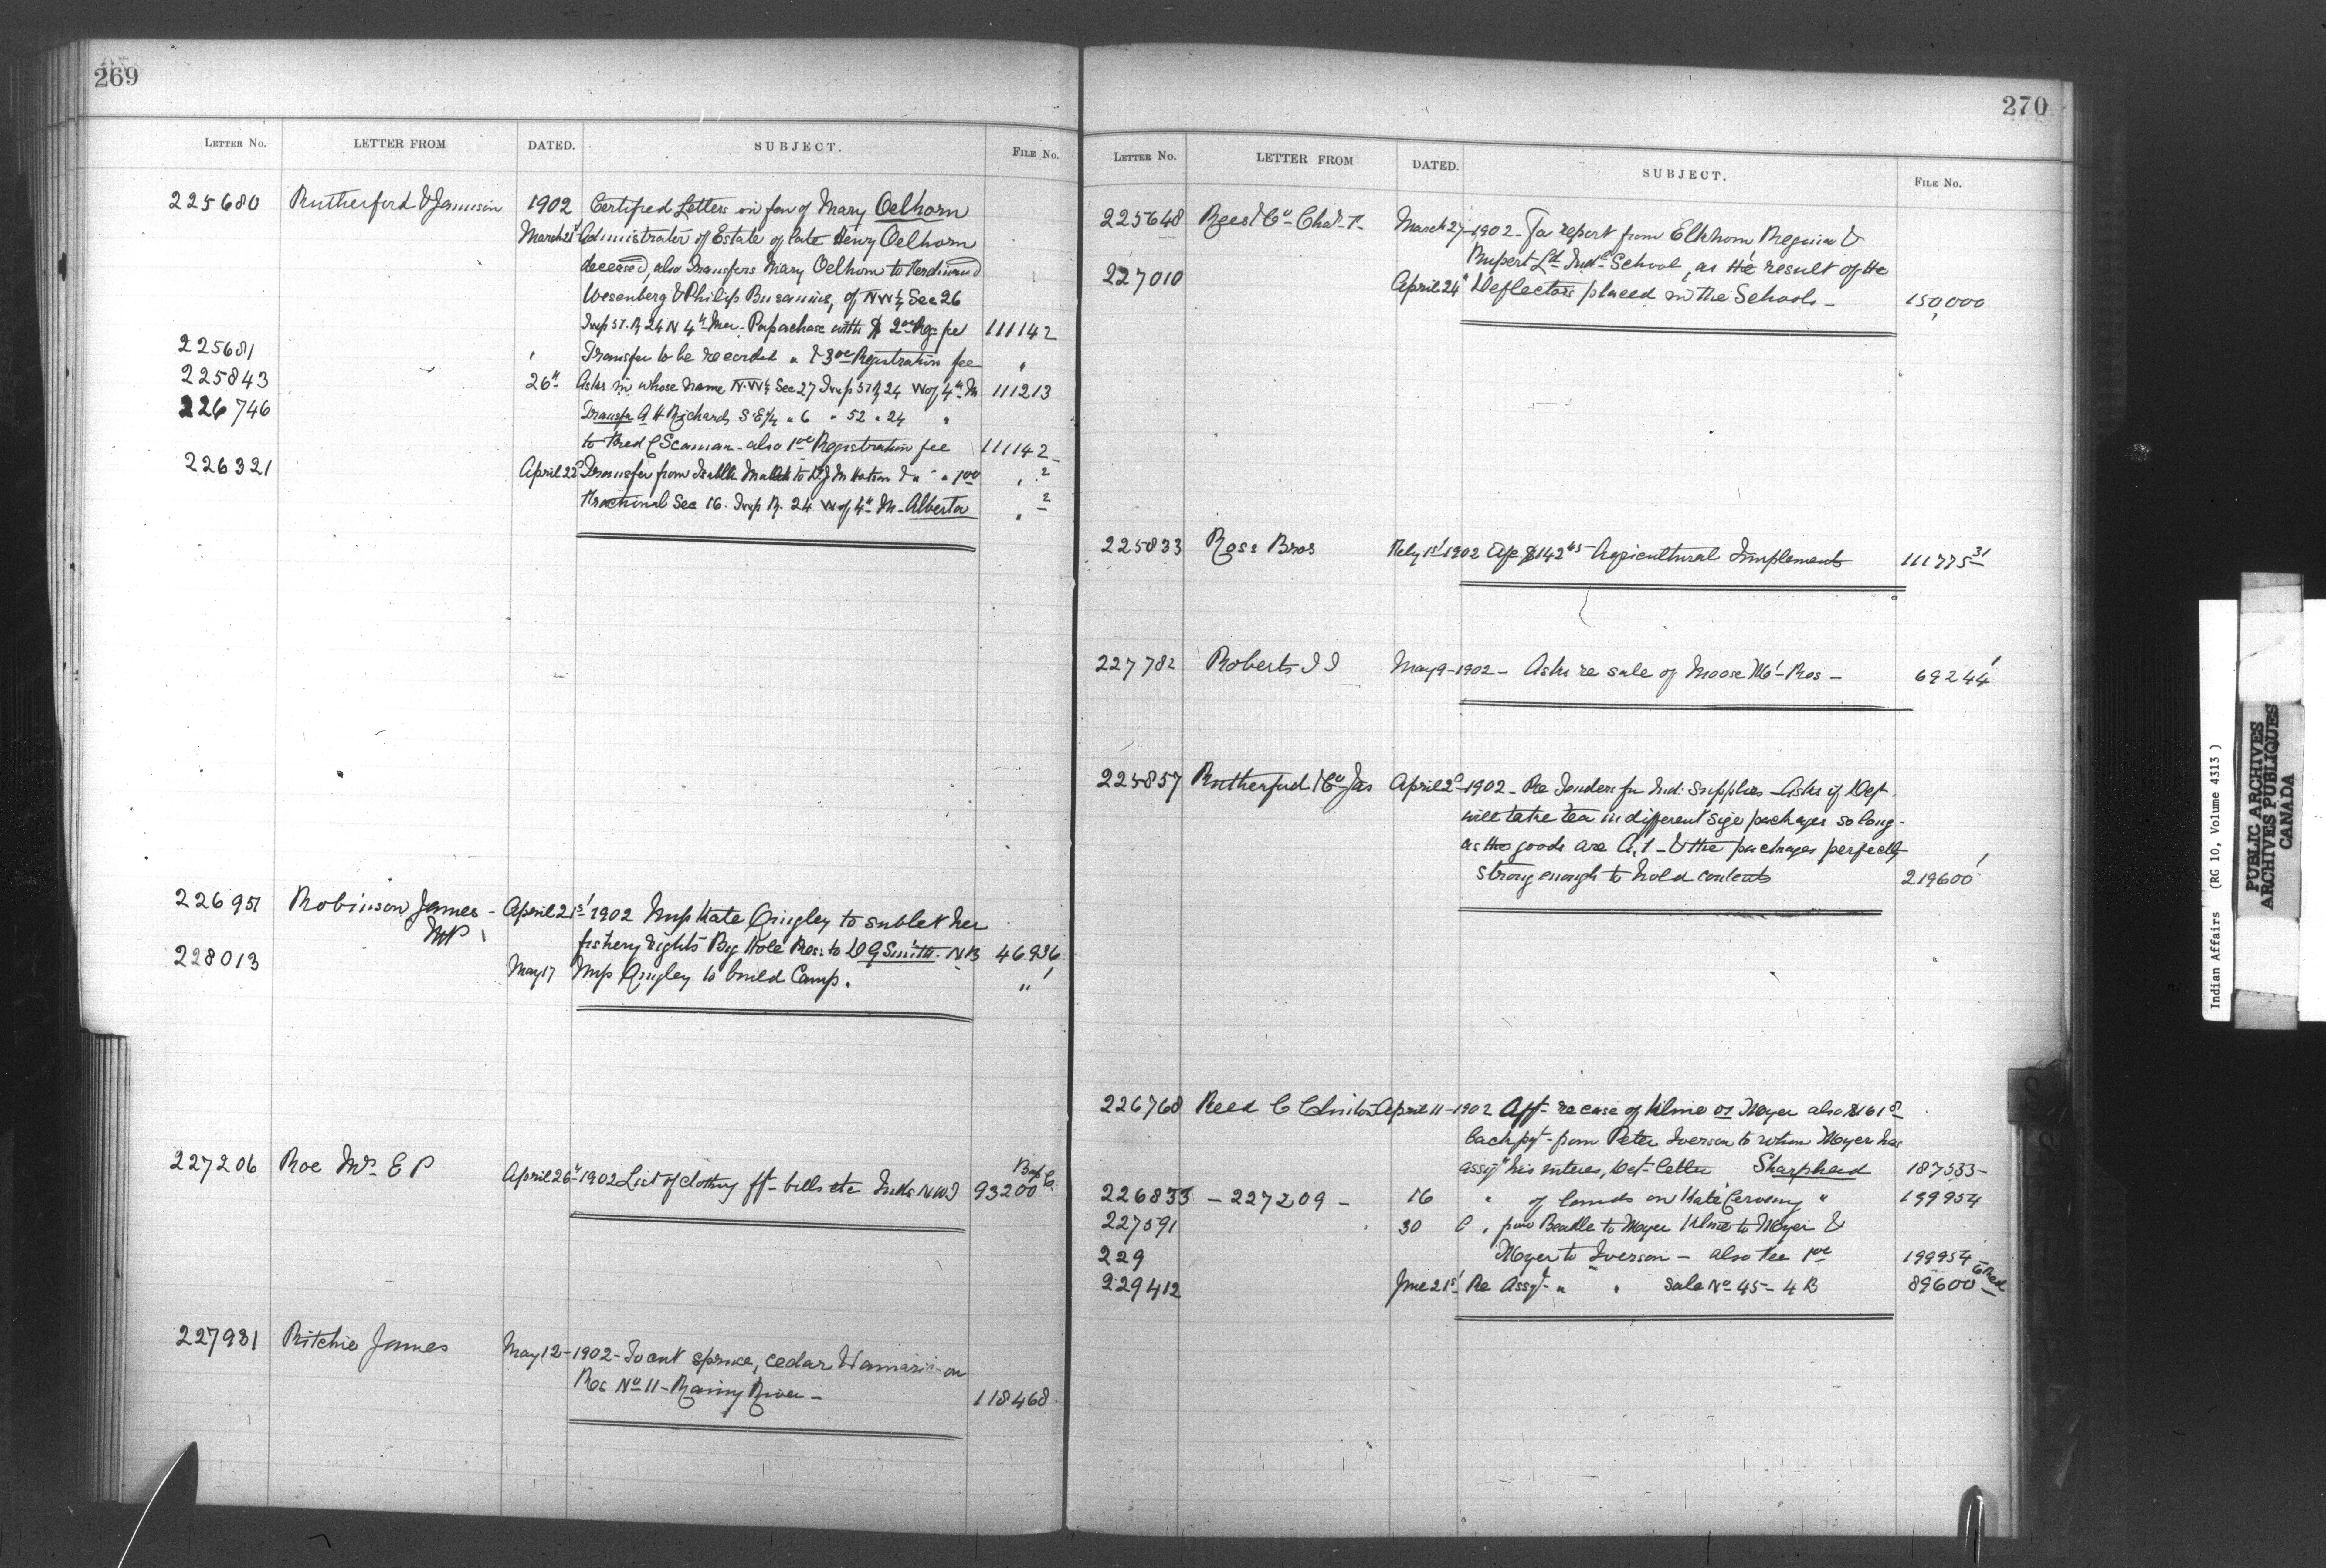 269
LETTER No. LETTER FROM DATED. SUBJECT. FILE No.
225680 Rutherford & Jamieson 1902 Certified Letters in fav of Mary Oelhorn
March 21 Administrator of Estate of late Henry Oelhorn
deceased, also Transfers Mary Oelhorn to Ferdinand
Wesenberg & Philip of NW¼ Sec 26
Twp 51. R 24 N 4th Mer. Papaschase with $2 00 Reg fee 111142
225681 Transfer to be recorded " & 3 00 Registration fee "
225843 26th Asks in whose name N.W¼ Sec 27 Twp 51 R 24 W of 4th M 111213
226746 Transfer A H Richards S.E¼ " 6 " 52 " 24 "
to Fred C Seaman - also 1 00 Registration fee 111142
226321 April 22d Transfer from to Watson & " " " 1 00 " 2
Fractional Sec 16. Twp R. 24 W of 4th M. Alberta " 2
226951 Robinson James - April 21st 1902 Mrs Kate Quigley to sublet her
MP fishery rights Big Hole Res. to D G Smith. NB 46936
228013 May 17 Mrs Quigley to build Camp. "
227206 Roe Mrs E P April 26th 1902 List of clothing frt bills etc Inds NWT 93200
227931 Ritchie James May 12-1902 - To cut spruce, cedar & tamarac on
Res No 11 - Rainy River - 118468
270
LETTER No. LETTER FROM DATED. SUBJECT. FILE No.
225648 Rees & Co Chas R. March 27-1902 - For report from Elkhorn Regina &
Rupert Ld Indl School, as the result of the
227010 April 24th Deflectors placed in the Schools - 150,000
225833 Ross Bros Feby 1st 1902 $142 Agricultural Implements 111775 31
227782 Roberts I I May 9-1902 - Asks re sale of Moose Mt - Res - 69244
225857 Rutherford & Co Jas April 2d-1902 - Re Tenders for Ind. supplies - Asks if Dept
will take tea in different size packages so long
as the goods are A,1 - & the packages perfectly
strong enough to hold contents 219600
226768 Reed C Clinton April 11-1902 Aff - re case of Ulme vs Moyer also $161
pt - from Peter Iverson to whom Moyer has
assigd his interest, Dept letter Sharphead 187533
226833 - 227209 - 16 " of lands on Kate " 199954
227591 30 " from Beadle to Moyer Ulme to Moyer &
229 Moyer to Iverson - also Fee 1 00 199954
229412 June 21st Re Assgt " " Sale No 45 - 4 B 89600
Indian Affairs (RG 10, Volume 4313)
PUBLIC ARCHIVES
ARCHIVES PUBLIQUES
CANADA